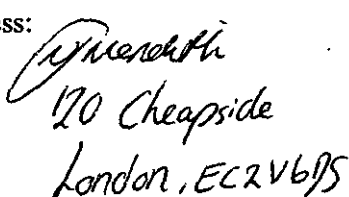 ss:
120 Cheapside
London, EC2V 6DS